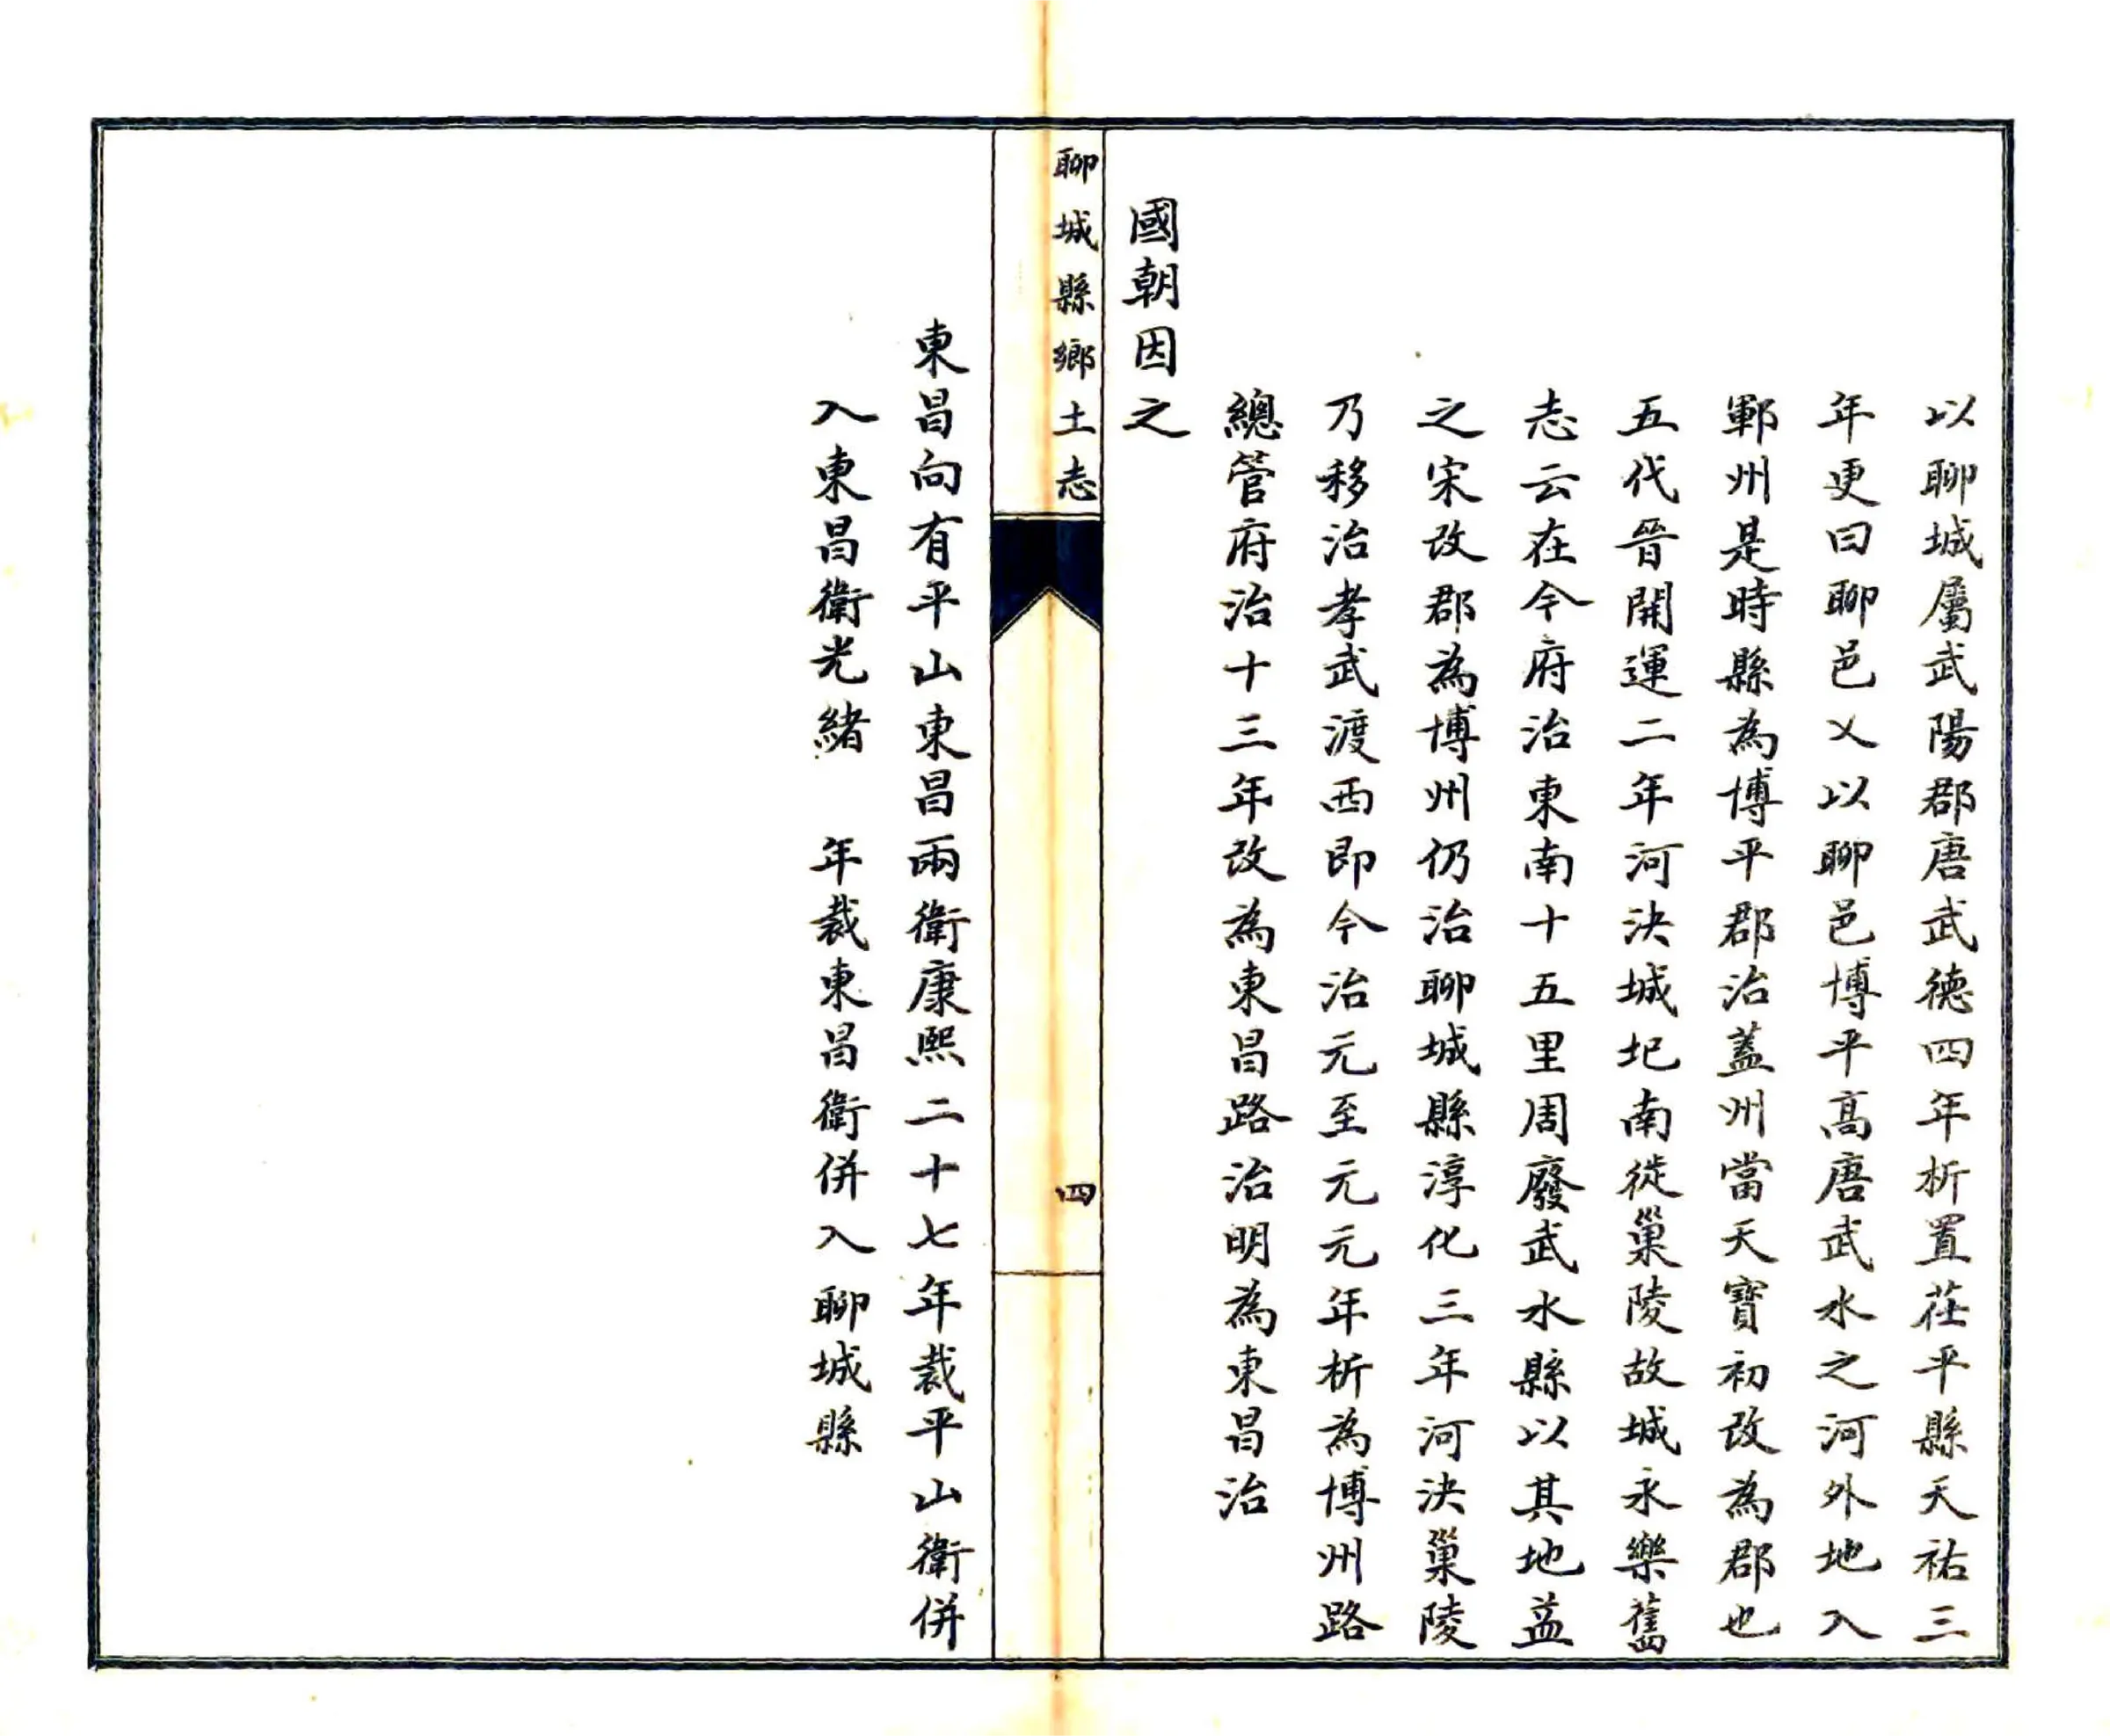 以聊城屬武陽郡唐武德四年析置茌平縣天祐三
年更曰聊邑乂以聊邑博平高唐武水之河外地入
鄆州是時縣為博平郡治蓋州當天寶初改為郡也
五代晉開運二年河決城圮南徙巢陵故城永樂舊
志云在今府治東南十五里周廢武水縣以其地益
之宋改郡為博州仍治聊城縣淳化三年河決巢陵
乃移治孝武渡西即今治元至元元年析為博州路
總管府治十三年改為東昌路治明為東昌治
國朝因之
聊城縣鄉土志
四
東昌向有平山東昌兩衛康熙二十七年裁平山衛併
入東昌衛光緒　年裁東昌衛併入聊城縣